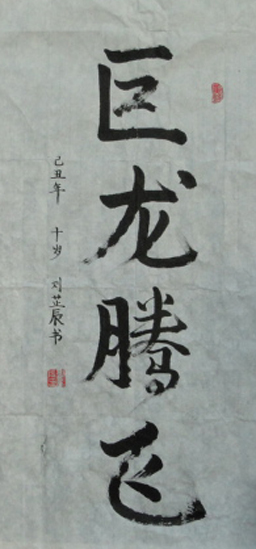 巨龙腾飞
己丑年 十岁 刘芷辰书